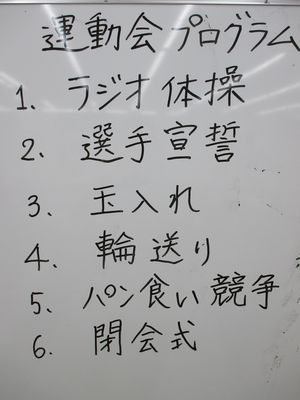 運動会プログラム
1. ラジオ体操
2. 選手宣誓
3. 玉入れ
4. 輪送り
5. パン食い競争
6. 閉会式